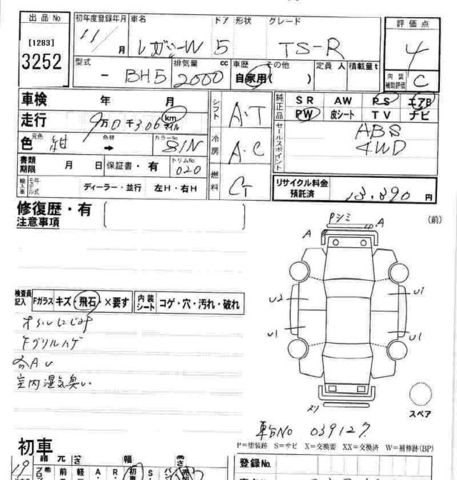 出品No 初年度登録年月 車名 ドア 形状 グレード 評価点
[1283] 11/月 レガシーW 5 TS-R 4
3252 型式 排気量 cc 車歴 その他 定員 人 積載量 t 内装補助評価 C
- BH5 2000 自家用( )
車検 年 月 シフト A・T 純正品 SR AW PS エアB
走行 9万0千306 km マイル PW 皮シート TV ナビ
色 元色 紺 色替 カラーNo 81N 冷房 A・C セールスポイント ABS
4WD
書類期限 月 日 保証書・有 トリムNo 020 燃料
輸入車 ディーラー・並行 左H・右H
リサイクル料金預託済 13,890円
修復歴・有
注意事項
(前)
検査員記入 Fガラス キズ・飛石・×要す 内装シート コゲ・穴・汚れ・破れ
オイルにじみ
Fグリルハゲ
室内湿気臭い
A A
U2 U1
U1 U1
スペア
車台No 039127
P=塗装跡 S=サビ X=交換要 XX=交換済 W=補修跡(BP)
初車
登録No.